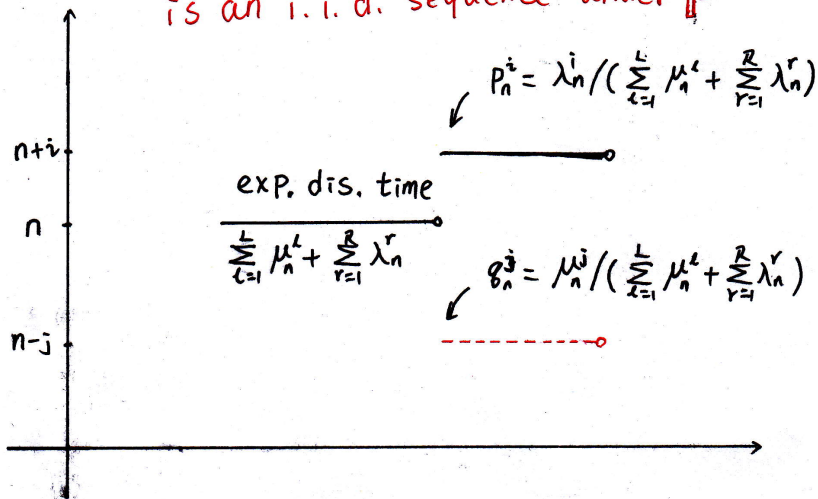 is an i.i.d. sequence under P
p_n^i = λ_n^i/(∑_{l=1}^L μ_n^l + ∑_{r=1}^R λ_n^r)
n+i
exp. dis. time
n
∑_{l=1}^L μ_n^l + ∑_{r=1}^R λ_n^r
q_n^j = μ_n^j/(∑_{l=1}^L μ_n^l + ∑_{r=1}^R λ_n^r)
n-j